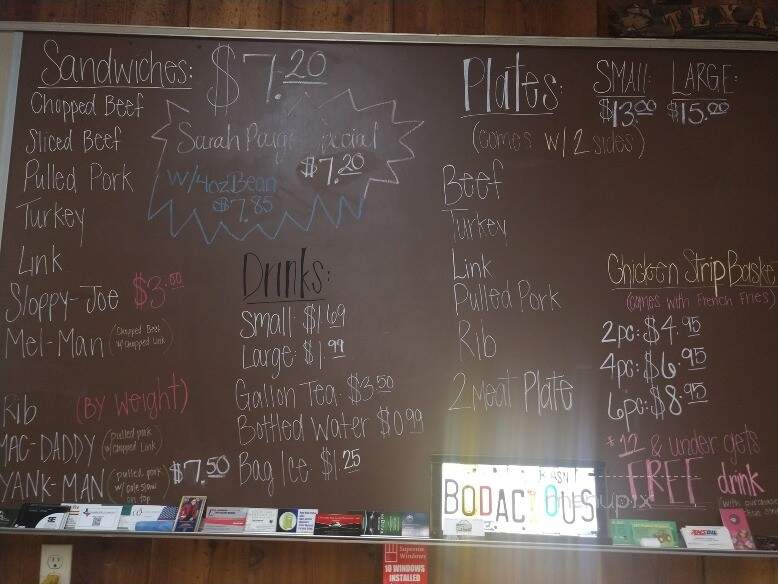 Sandwiches: $7.20
Chopped Beef
Sliced Beef
Pulled Pork
Turkey
Link
Sloppy-Joe $3.50
Mel-Man (Chopped Beef w/ Chopped Link)
Rib (By Weight)
MAC-DADDY (pulled pork w/ Chopped Link)
YANK-MAN (pulled pork w/ coleslaw on top) $7.50
Sarah Paige Special
$7.20
w/4oz Bean
$7.85
Drinks:
Small: $1.69
Large: $1.99
Gallon Tea: $3.50
Bottled Water $0.99
Bag Ice: $1.25
Plates: SMALL: LARGE:
$13.00 $15.00
(comes w/2 sides)
Beef
Turkey
Link
Pulled Pork
Rib
2 Meat Plate
Chicken Strip Baske
(comes with French Fries)
2pc: $4.95
4pc: $6.95
6pc: $8.95
*12 & under gets
FREE drink
BODACIOUS
TEXA
Supreme
Windows
10 WINDOWS
INSTALLED